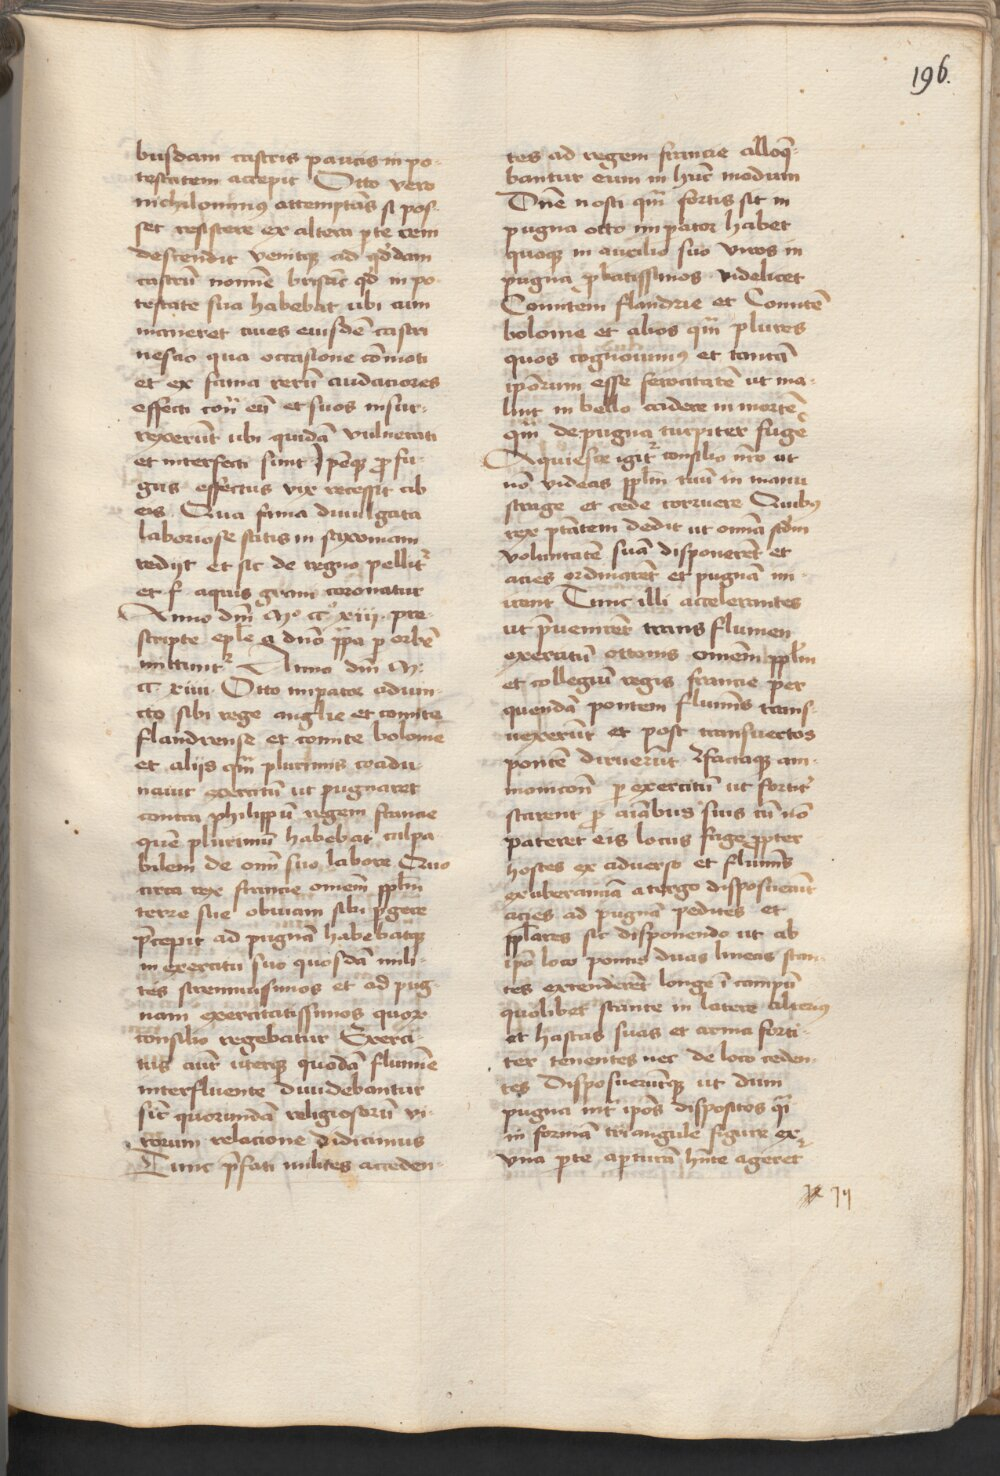 196.
busdam castris paucis in po-
testatem accepit Otto vero
nichilominus attemptās si pos-
set resistere ex altera pte rem
descendit venitqz ad qddam
castrū nomine brisac qd in po-
testate sua habebat ubi cum
maneret ciues eiusdē castri
nescio qua occasione cōmoti
et ex fama rerū audaciores
effecti cont eū et suos insur-
rexerūt ubi quidā vulnerati
et interfecti sunt Ipeqz profu-
gus effectus vix recessit ab
eis Qua fama diuulgata
laboriose satis in saxoniam
redijt et sic de regno pellitr
et f aquis grani coronatur
Anno dni Mo cco xiii pre-
scripte eple a dno ppa p orbē
mittuntr Anno dni M
cc xiiii Otto impator adiun-
cto sibi rege anglie et comite
flandrense et comite bolonie
et alijs qm plurimis coadu-
nauit exercitū ut pugnaret
contra philippū regem francie
quē plurimū habebat culpa-
bilem de omi suo labore Quo
circa rex francie omem pplm
terre sue obuiam sibi pgere
pcepit ad pugnā habebatqz
in exercitu suo quosdā mili-
tes strennuissimos et ad pug-
nam exercitatissimos quor
consilio regebatur Exerci-
tus aut uterqz quodā flumie
interfluente diuidebantur
sic quorundā religiosorū vi-
rorum relacione didicimus
Tunc pfati milites acceden-
tes ad regem francie alloq-
bantur eum in hūc modum
Dne nosti qm fortis sit in
pugna otto impator habet
quoqz in auxilio suo viros in
pugna pbatissimos videlicet
Comitem flandrie et Comitē
bolonie et alios qm plures
quos cognouimus et tantā
iporum esse ferocitatē ut ma-
lint in bello cadere in mortē
qm de pugna turpiter fugē
Aquiesce igitr consilio nro ut
nō videas pplm tuū in manu
strage et cede corruere Quibus
rex ptatem dedit ut omia scdm
voluntatē suā disponerēt et
acies ordinarēt et pugnā in-
irent Tunc illi accelerantes
ut pvenirēt trans flumen
exercitū ottonis omem pplm
et collegiū regis francie per
quendā pontem flumis trans-
uexerūt et post transuectos
pontē diruerūt Factaqz am-
monicon p exercitū ut fortitr
starent p aiābus suis cū nō
pateret eis locus fuge ppter
hostes ex aduerso et flumis
exuberanciā a tergo disposuerūt
acies ad pugnā pedites et
pplares sic disponendo ut ab
ipo loco pontis duas lineas stan-
tes extenderēt longe ī campū
quolibet stante in latere alterius
et hastas suas et arma forti-
ter tenentes nec de loco ceden-
tes Disposueruntqz ut dum
pugna int ipos dispositos qi
in formā triangule figure ex
vna pte apturā hnte ageret